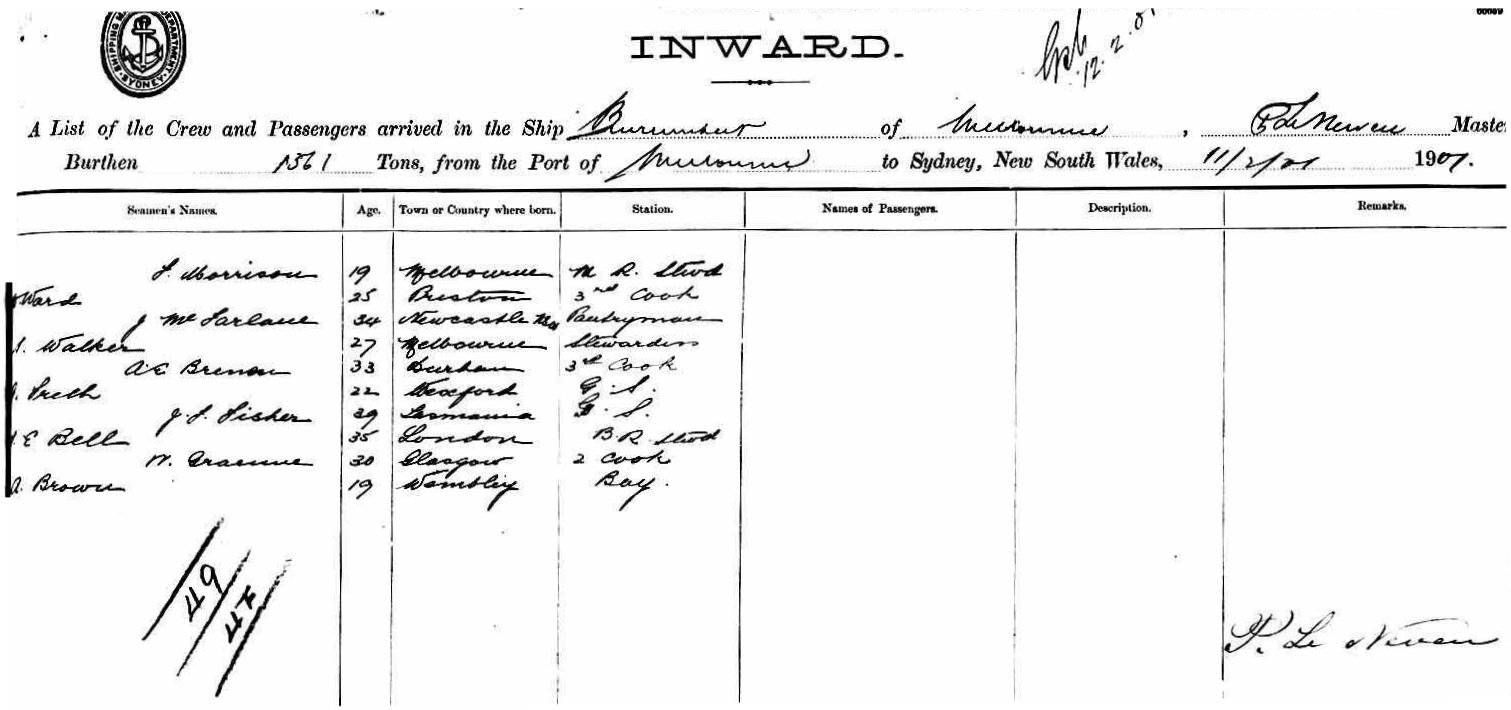 SHIPPING DEPARTMENT SYDNEY
INWARD.
12.2.01
A List of the Crew and Passengers arrived in the Ship Burrumbeet of Melbourne, P Le Neveu Maste
Burthen 1361 Tons, from the Port of Melbourne to Sydney, New South Wales, 11/2/01 1901.
Seamen's Names. Age. Town or Country where born. Station. Names of Passengers. Description. Remarks.
Morrison 19 Melbourne M. R. Stwd
Ward 25 3rd Cook
J McFarlane 34 Newcastle Pantryman
Walker 27 Melbourne Stewardess
A E 33 Durham 3rd Cook
22 Wexford G. S.
J. F. Fisher 39 Tasmania G. S.
E Bell 35 London B.R. Stwd
W. Graeme 30 Glasgow 2 Cook
A. Brown 19 Wembley Boy.
49
P. Le Neveu